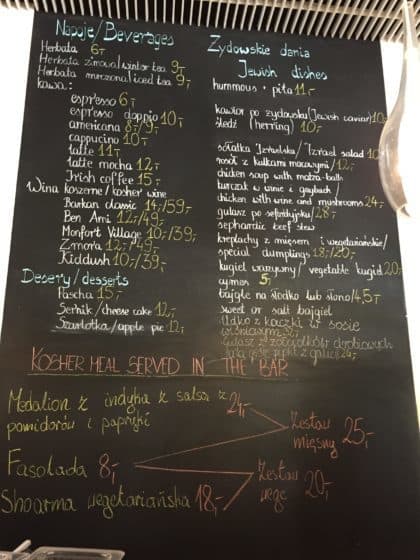 Napoje/Beverages
Herbata 6,-
Herbata zimowa/winter tea 9,-
Herbata mrożona/iced tea 9,-
kawa:
espresso 6,-
espresso doppio 10,-
americana 8,-/9,-
cappucino 10,-
latte 11,-
latte mocha 12,-
Irish coffee 15,-
Wina koszerne/kosher wine
Barkan classic 14,-/59,-
Ben Ami 12,-/49,-
Monfort Village 10,-/39,-
Zmora 12,-/49,-
Kiddush 10,-/39,-
Desery/desserts
Pascha 15,-
Sernik/cheese cake 12,-
Szarlotka/apple pie 12,-
Żydowskie dania
Jewish dishes
hummous + pita 11,-
kawior po żydowsku (Jewish caviar) 10,-
śledź (herring) 10,-
sałatka Izraelska/Izrael salad 10,-
rosół z kulkami macowymi/12,-
chicken soup with matza-balls
kurczak w winie i grzybach/
chicken with wine and mushrooms 24,-
gulasz po sefardyjsku/28,-
sephardic beef stew
kreplachy z mięsem i wegetariańskie/
special dumplings 18,-/20,-
kugiel warzywny/vegetable kugiel 20,-
cymes 5,-
bajgle na słodko lub słono/4,5,-
sweet or salt bajgiel
Udko z kaczki w sosie
Gulasz z żołądków drobiowych
KOSHER MEAL SERVED IN THE BAR
Medalion z indyka z salsą z 24,-
pomidorów i papryki
Zestaw
mięsny 25,-
Fasolada 8,-
Shoarma wegetariańska 18,-
Zestaw
wege 20,-